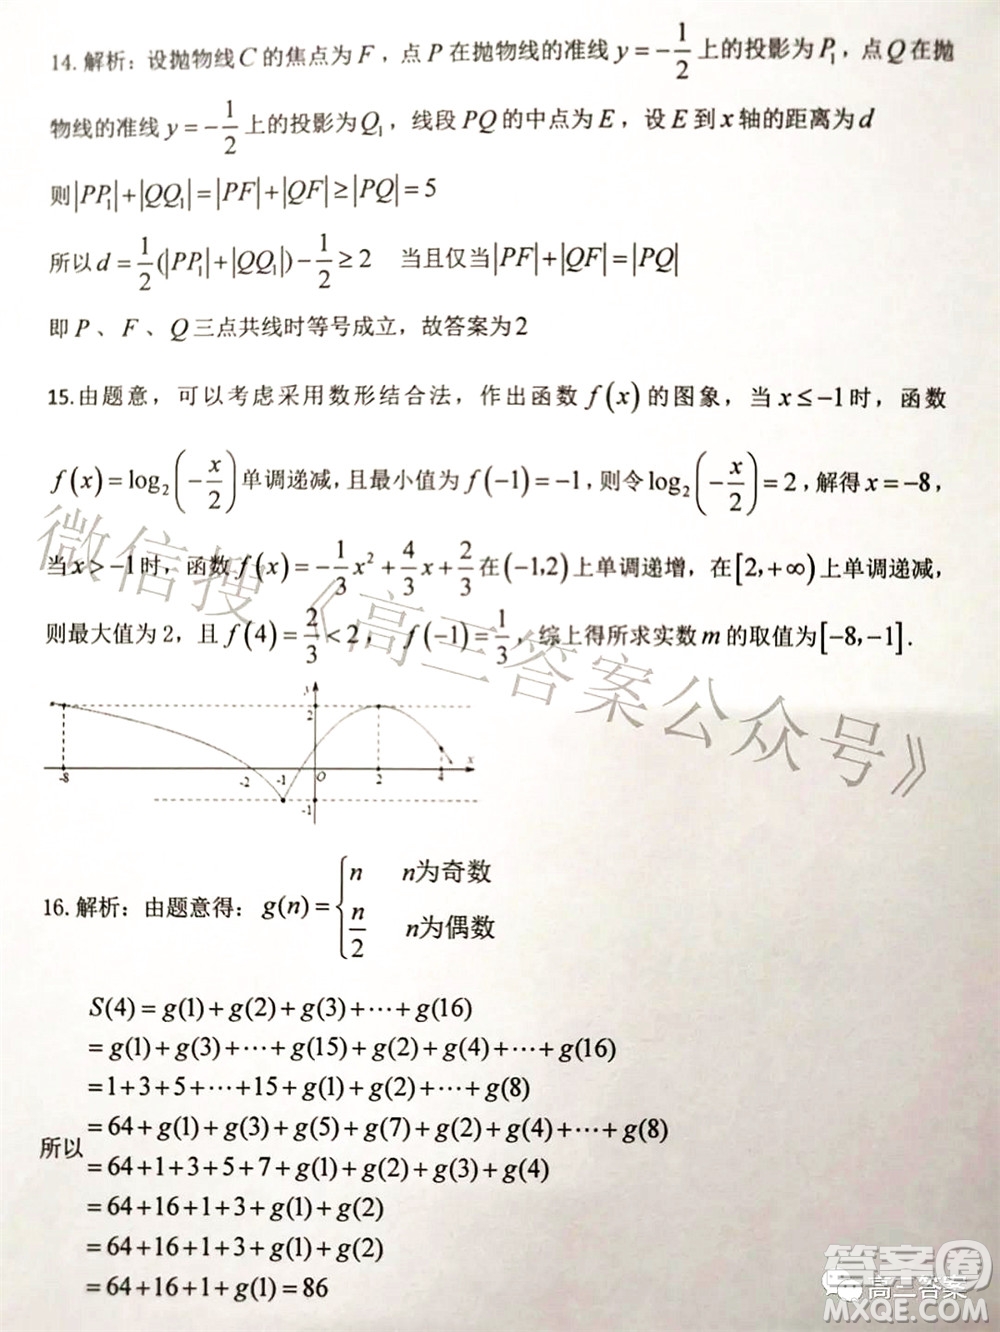 14. 解析：设抛物线 C 的焦点为 F，点 P 在抛物线的准线 y = -1/2 上的投影为 P₁，点 Q 在抛
物线的准线 y = -1/2 上的投影为 Q₁，线段 PQ 的中点为 E，设 E 到 x 轴的距离为 d
则|PP₁|+|QQ₁|=|PF|+|QF|≥|PQ|=5
所以 d = 1/2(|PP₁|+|QQ₁|) - 1/2 ≥ 2 当且仅当|PF|+|QF|=|PQ|
即 P、F、Q 三点共线时等号成立，故答案为 2
15.由题意，可以考虑采用数形结合法，作出函数 f(x) 的图象，当 x ≤ -1 时，函数
f(x) = log₂(-x/2) 单调递减，且最小值为 f(-1) = -1，则令 log₂(-x/2) = 2，解得 x = -8，
当 x > -1 时，函数 f(x) = -1/3 x² + 4/3 x + 2/3 在 (-1,2) 上单调递增，在 [2,+∞) 上单调递减，
则最大值为 2，且 f(4) = 2/3 < 2，f(-1) = 1/3，综上得所求实数 m 的取值为 [-8,-1].
y
2
-8 -2 -1 O 2 4 x
-1
16. 解析：由题意得：g(n) = { n n为奇数
n/2 n为偶数
S(4) = g(1) + g(2) + g(3) + ⋯ + g(16)
= g(1) + g(3) + ⋯ + g(15) + g(2) + g(4) + ⋯ + g(16)
= 1 + 3 + 5 + ⋯ + 15 + g(1) + g(2) + ⋯ + g(8)
= 64 + g(1) + g(3) + g(5) + g(7) + g(2) + g(4) + ⋯ + g(8)
所以
= 64 + 1 + 3 + 5 + 7 + g(1) + g(2) + g(3) + g(4)
= 64 + 16 + 1 + 3 + g(1) + g(2)
= 64 + 16 + 1 + 3 + g(1) + g(2)
= 64 + 16 + 1 + g(1) = 86
微信搜《高三答案公众号》
答案圈
高三答案
MXQE.COM